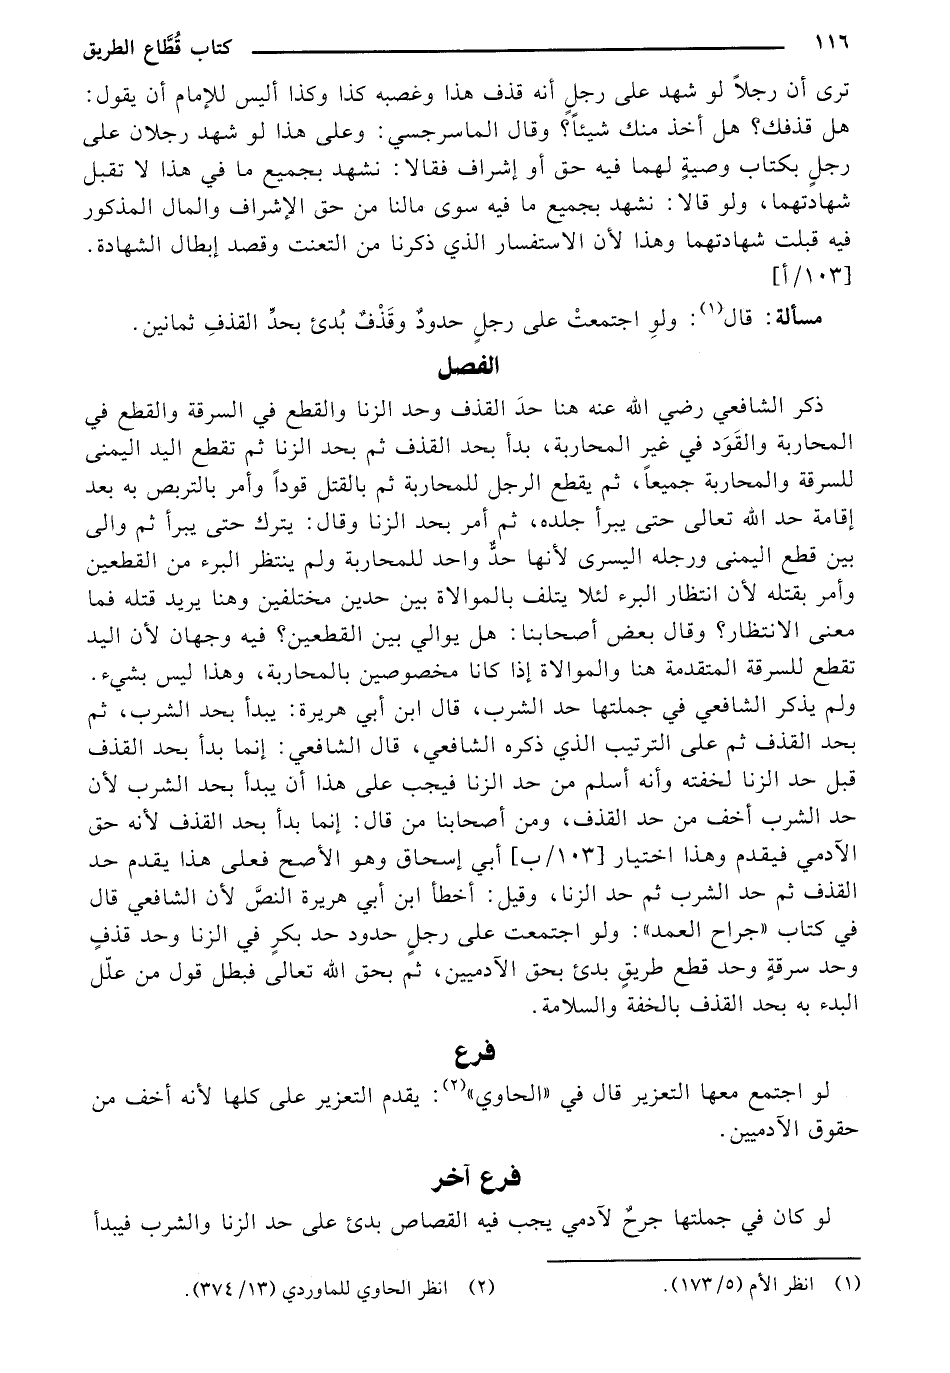 ١١٦ كتاب قُطَّاع الطريق
ترى أن رجلاً لو شهد على رجلٍ أنه قذف هذا وغصبه كذا وكذا أليس للإمام أن يقول:
هل قذفك؟ هل أخذ منك شيئاً؟ وقال الماسرجسي: وعلى هذا لو شهد رجلان على
رجلٍ بكتاب وصيةٍ لهما فيه حق أو إشراف فقالا: نشهد بجميع ما في هذا لا تقبل
شهادتهما، ولو قالا: نشهد بجميع ما فيه سوى مالنا من حق الإشراف والمال المذكور
فيه قبلت شهادتهما وهذا لأن الاستفسار الذي ذكرنا من التعنت وقصد إبطال الشهادة.
[١٠٣/أ]
مسألة: قال(١): ولوِ اجتمعتْ على رجلٍ حدودٌ وقَذْفٌ بُدئ بحدِّ القذفِ ثمانين.
الفصل
ذكر الشافعي رضي الله عنه هنا حدَ القذف وحد الزنا والقطع في السرقة والقطع في
المحاربة والقَوَد في غير المحاربة، بدأ بحد القذف ثم بحد الزنا ثم تقطع اليد اليمنى
للسرقة والمحاربة جميعاً، ثم يقطع الرجل للمحاربة ثم بالقتل قوداً وأمر بالتربص به بعد
إقامة حد الله تعالى حتى يبرأ جلده، ثم أمر بحد الزنا وقال: يترك حتى يبرأ ثم والى
بين قطع اليمنى ورجله اليسرى لأنها حدٌّ واحد للمحاربة ولم ينتظر البرء من القطعين
وأمر بقتله لأن انتظار البرء لئلا يتلف بالموالاة بين حدين مختلفين وهنا يريد قتله فما
معنى الانتظار؟ وقال بعض أصحابنا: هل يوالي بين القطعين؟ فيه وجهان لأن اليد
تقطع للسرقة المتقدمة هنا والموالاة إذا كانا مخصوصين بالمحاربة، وهذا ليس بشيء.
ولم يذكر الشافعي في جملتها حد الشرب، قال ابن أبي هريرة: يبدأ بحد الشرب، ثم
بحد القذف ثم على الترتيب الذي ذكره الشافعي، قال الشافعي: إنما بدأ بحد القذف
قبل حد الزنا لخفته وأنه أسلم من حد الزنا فيجب على هذا أن يبدأ بحد الشرب لأن
حد الشرب أخف من حد القذف، ومن أصحابنا من قال: إنما بدأ بحد القذف لأنه حق
الآدمي فيقدم وهذا اختيار [١٠٣/ب] أبي إسحاق وهو الأصح فعلى هذا يقدم حد
القذف ثم حد الشرب ثم حد الزنا، وقيل: أخطأ ابن أبي هريرة النصَّ لأن الشافعي قال
في كتاب «جراح العمد»: ولو اجتمعت على رجلٍ حدود حد بكرٍ في الزنا وحد قذفٍ
وحد سرقةٍ وحد قطع طريقٍ بدئ بحق الآدميين، ثم بحق الله تعالى فبطل قول من علّل
البدء به بحد القذف بالخفة والسلامة.
فرع
لو اجتمع معها التعزير قال في «الحاوي»(٢): يقدم التعزير على كلها لأنه أخف من
حقوق الآدميين.
فرع آخر
لو كان في جملتها جرحٌ لآدمي يجب فيه القصاص بدئ على حد الزنا والشرب فيبدأ
(١) انظر الأم (٥/ ١٧٣). (٢) انظر الحاوي للماوردي (١٣/ ٣٧٤).